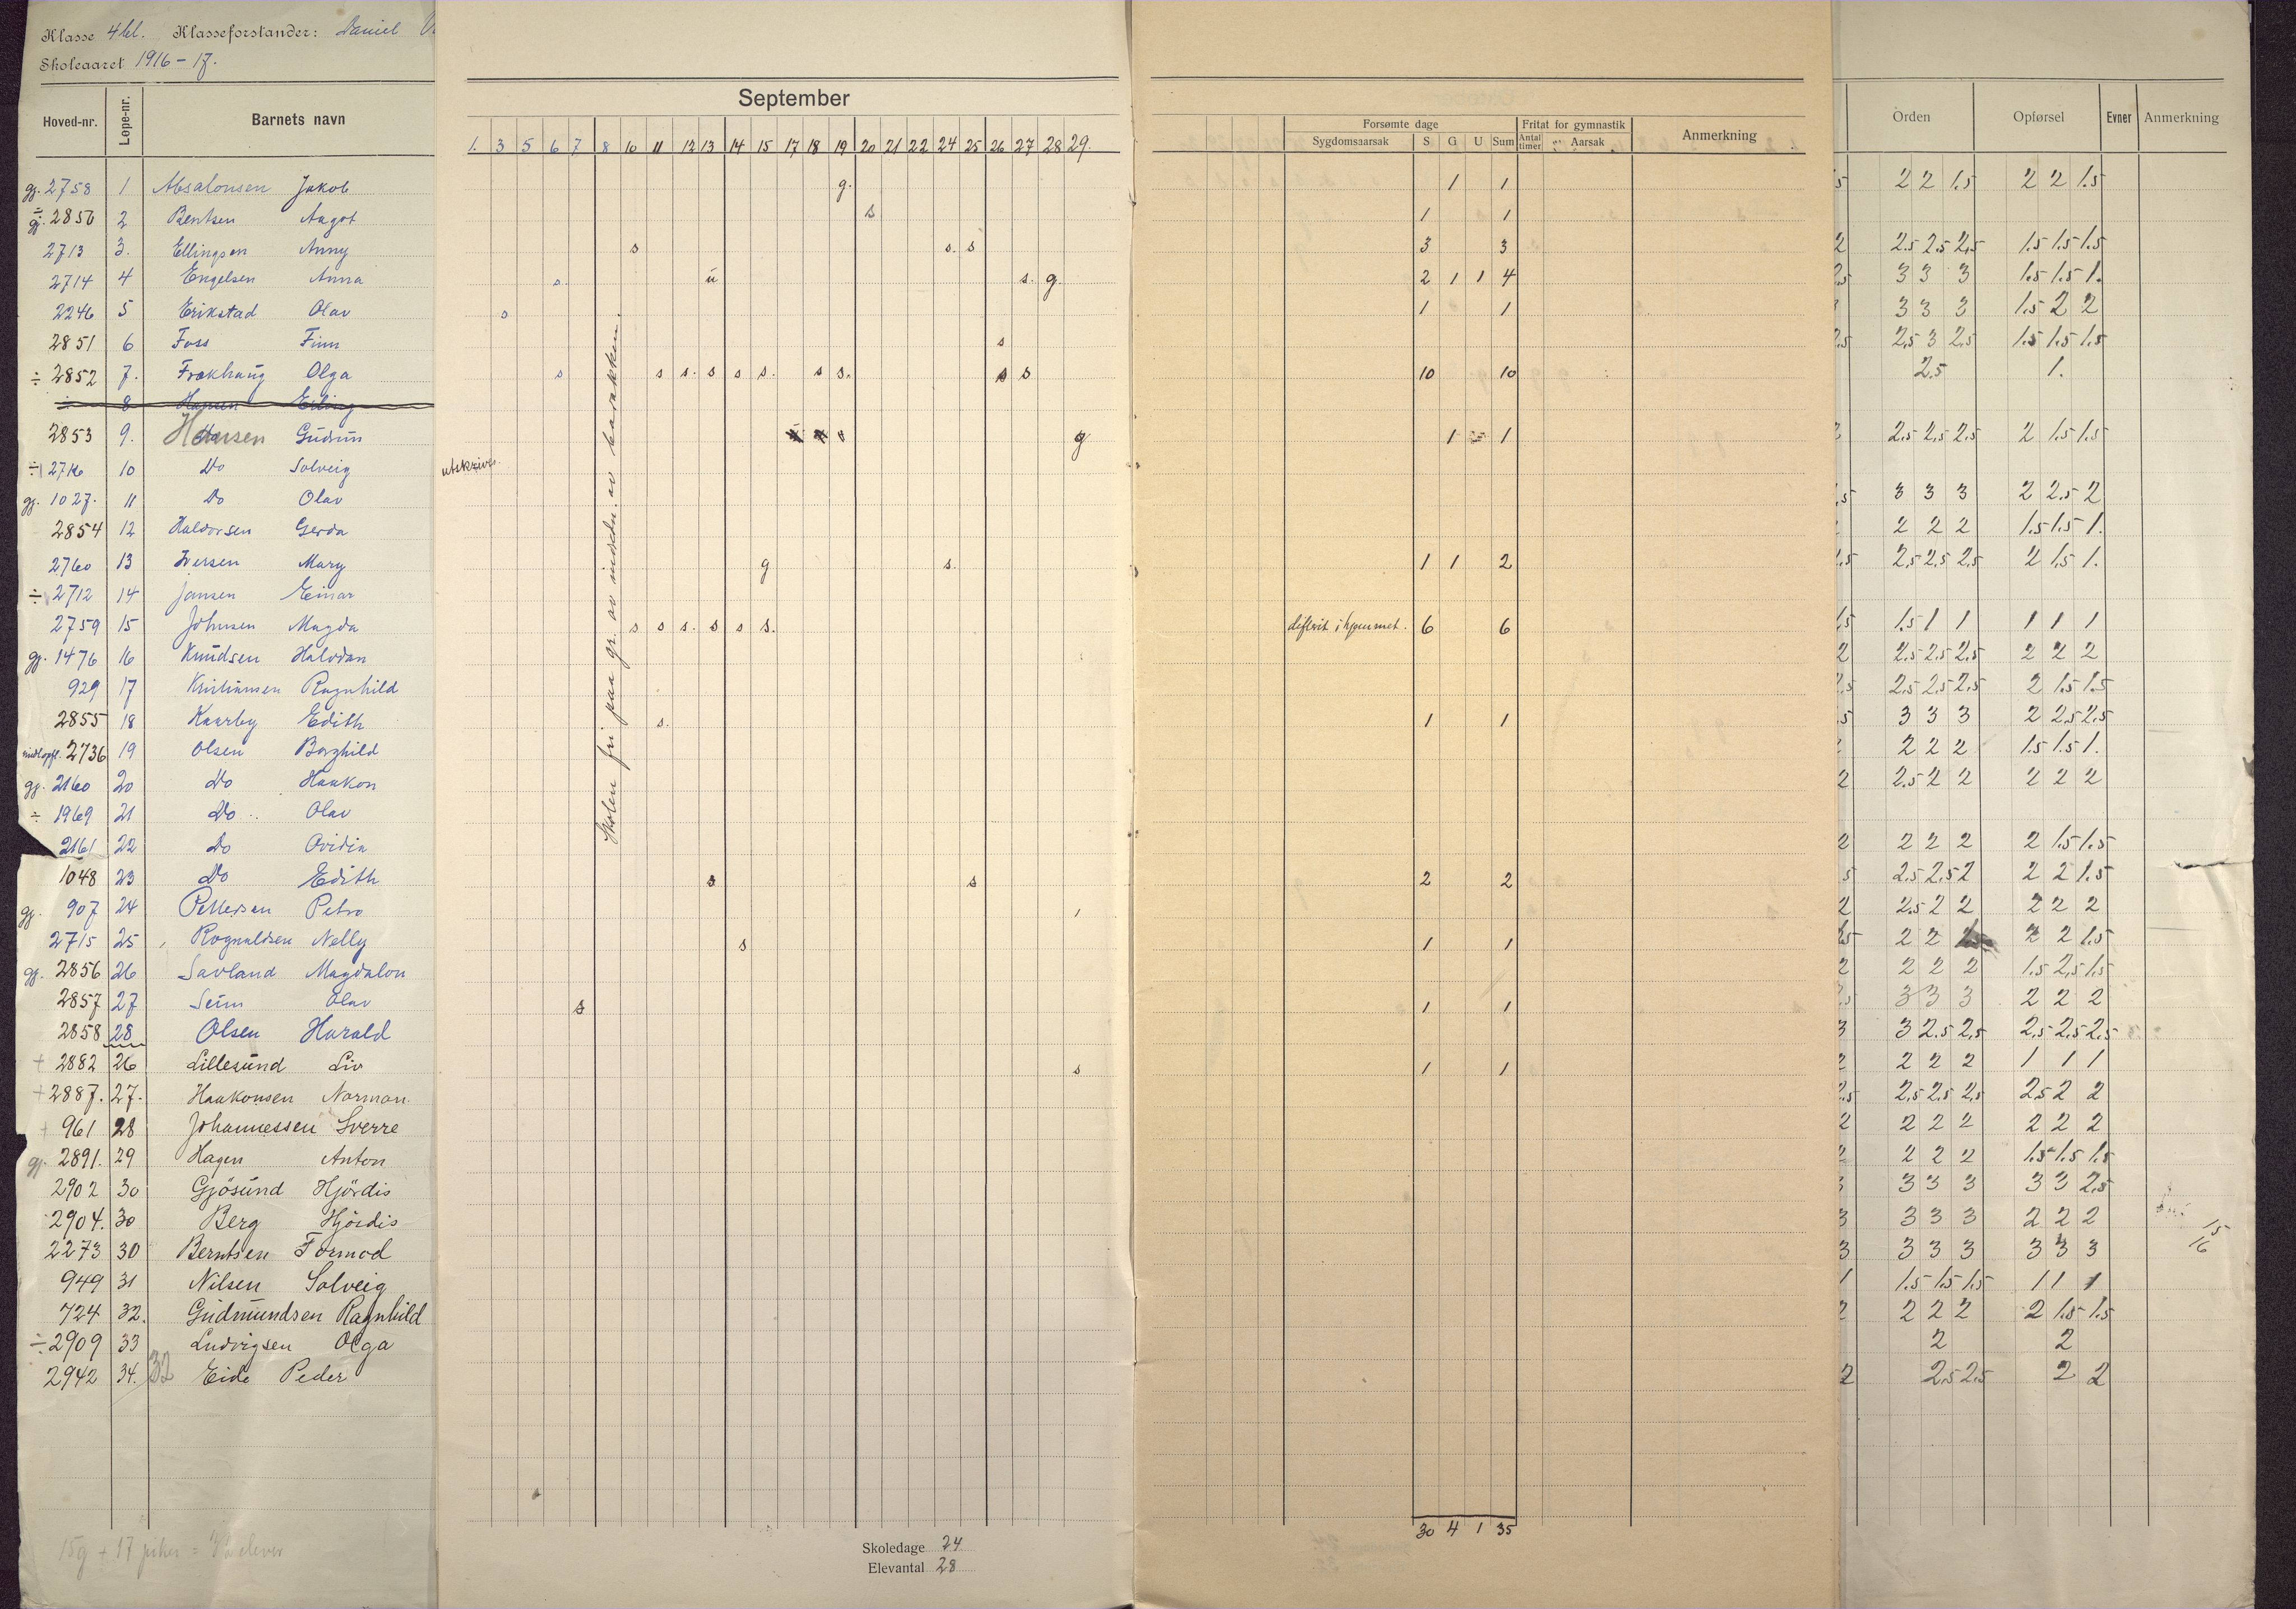 Klasse 4 kl. Klasseforstander: Daniel
Skoleaaret 1916-17.
Hoved-nr. Løpe-nr. Barnets navn
September
Forsømte dage Fritat for gymnastik Anmerkning
Sygdomsaarsak S G U Sum Antal timer Aarsak
Orden Opførsel Evner Anmerkning
1. 3 5 6 7 8 10 11 12 13 14 15 17 18 19 20 21 22 24 25 26 27 28 29.
gj. 2758 1 Absalonsen Jakob g. 1 1 2 2 1.5 2 2 1.5
÷ gj. 2850 2 Bentsen Aagot s 1 1
2713 3. Ellingsen Anny s s. s 3 3 2 2.5 2.5 2.5 1.5 1.5 1.5
2714 4 Engelsen Anna s. u s. g. 2 1 1 4 3 3 3 1.5 1.5 1.
2246 5 Erikstad Olav s 1 1 3 3 3 1.5 2 2
2851 6 Foss Finn s 2.5 3 2.5 1.5 1.5 1.5
÷ 2852 7. Frakhaug Olga s s s. s s s. s s. s s 10 10 2.5 1.
8 Hansen Erling
2853 9. Hansen Gudrun g 1 1 2.5 2.5 2.5 2 1.5 1.5
÷ 2716 10 Do Solveig utskrives
gj. 1027. 11 Do Olav 3 3 3 2 2.5 2
2854 12 Haldorsen Gerda 2 2 2 1.5 1.5 1.
2760 13 Iversen Mary g s. 1 1 2 2.5 2.5 2.5 2 1.5 1.
÷ 2712 14 Jansen Einar
2759 15 Johnsen Magda s s s. s s s. difterit i hjemmet. 6 6 1.5 1 1 1 1 1
gj. 1476 16 Knudsen Halvdan 2 2.5 2.5 2.5 2 2 2
929 17 Kristiansen Ragnhild 2.5 2.5 2.5 2 1.5 1.5
2855 18 Kaarby Edith s. 1 1 3 3 3 2 2.5 2.5
2736 19 Olsen Borghild 2 2 2 1.5 1.5 1.
gj. 2160 20 Do Haakon 2 2.5 2 2 2 2 2
÷ 1969 21 Do Olav
2161 22 Do Ovidia 2 2 2 2 2 1.5 1.5
1048 23 Do Edith s s 2 2 2.5 2.5 2 2 2 1.5
gj. 907 24 Pettersen Petra 1 2 2.5 2 2 2 2 2
2715 25 Rognaldsen Nelly s 1 1 2 2 2 2 1.5
gj. 2856 26 Savland Magdalon 2 2 2 2 1.5 2.5 1.5
2857 27 Seim Olav s 1 1 3 3 3 2 2 2
2858 28 Olsen Harald 3 3 2.5 2.5 2.5 2.5 2.5
+ 2882 26 Lillesund Liv s 1 1 2 2 2 2 1 1 1
+ 2887. 27. Haakonsen Norman. 2.5 2.5 2.5 2.5 2 2
+ 961 28 Johannessen Sverre 2 2 2 2 2 2 2
gj. 2891. 29 Hagen Anton 2 2 2 2 1.5 1.5 1.5
2902 30 Gjøsund Hjørdis 3 3 3 3 3 2.5
2904. 30 Berg Hjørdis 3 3 3 3 2 2 2 15
2273 30 Berntsen Tormod 3 3 3 3 3 3 3 16
949 31 Nilsen Solveig 1 1.5 1.5 1.5 1 1 1
724 32. Gudmundsen Ragnhild 2 2 2 2 2 1.5 1.5
÷ 2909 33 Ludvigsen Olga 2 2
2942 34. 32 Eide Peder 2 2.5 2.5 2 2
Skolen fri paa gr. av av barakken.
30 4 1 35
15 g + 17 piker = elever
Skoledage 24
Elevantal 28